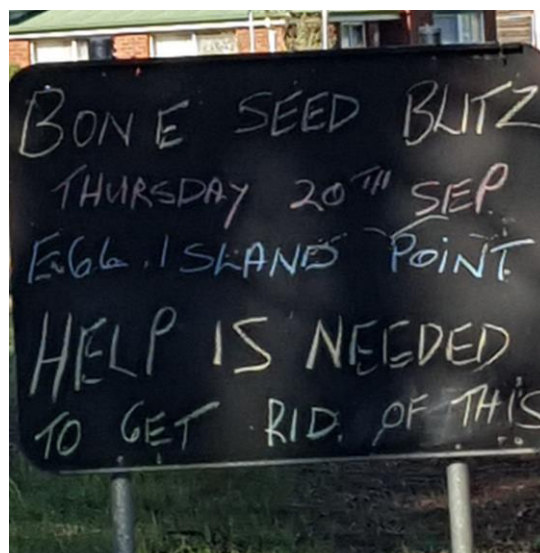 BONE SEED BLITZ
THURSDAY 20TH SEP
EGG ISLAND POINT
HELP IS NEEDED
TO GET RID OF THIS